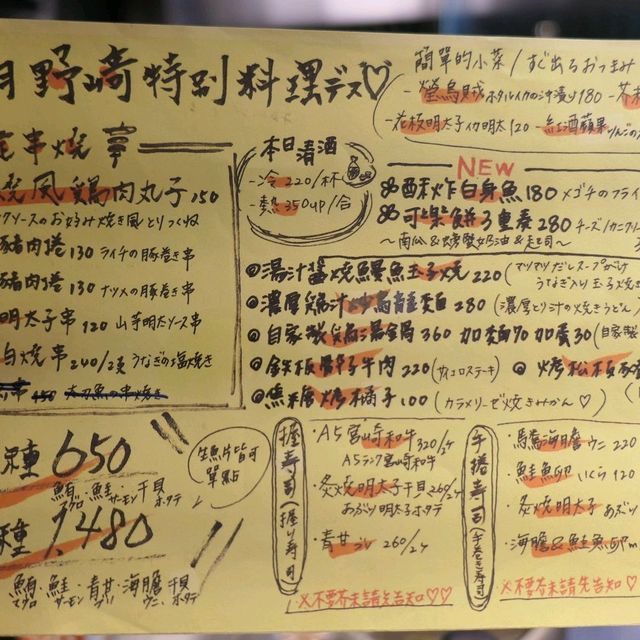 月野崎特別料理デス♡
簡單的小菜/すぐ出るおつまみ
-螢烏賊 ホタルイカの沖漬け 180
-花枝明太子 イカ明太 120 -紅酒蘋果 りんごの
串燒
燒風鷄肉丸子 150
ソースのお好み焼き風とりつくね
豬肉捲 130 ライチの豚巻き串
豬肉捲 130 ナツメの豚巻き串
明太子串 120 山芋明太ソース串
白燒串 240/2支 うなぎの塩焼き
本日清酒
-冷 220/杯
-熱 350up/合
NEW
酥炸白身魚 180 メゴチのフライ
可樂餅3重奏 280 チーズ/カニクリーム
~南瓜&螃蟹奶油&起司~
湯汁醬燒鰻魚玉子燒 220 (アツアツだしスープがけ
うなぎ入り玉子焼き
濃厚鷄汁炒烏龍麵 280 (濃厚とり汁の焼きうどん)
自家製鷄湯鍋 360 加麵70 加蛋30 (自家製
鉄板骰子牛肉 220 (サイコロステーキ)
烤松板豬
焦糖烤橘子 100 (カラメリーゼ焼きみかん♡)
種 650
鮪・鮭・干貝
マグロ サーモン ホタテ
生魚片皆可
單點
種 1,480
鮪・鮭・青甘・海膽・干貝
マグロ サーモン ブリ ウニ ホタテ
握寿司(握り寿司)
・A5宮崎和牛 320/2ケ
A5ランク宮崎和牛
・炙燒明太子干貝 260/2ケ
あぶり明太子ホタテ
・青甘 ブリ 260/2ケ
※不要芥末請先告知♡♡
手捲寿司(手巻き寿司)
・馬糞海膽 ウニ 220
・鮭魚卵 いくら 120
・炙燒明太子 あぶり
・海膽&鮭魚卵
※不要芥末請先告知♡